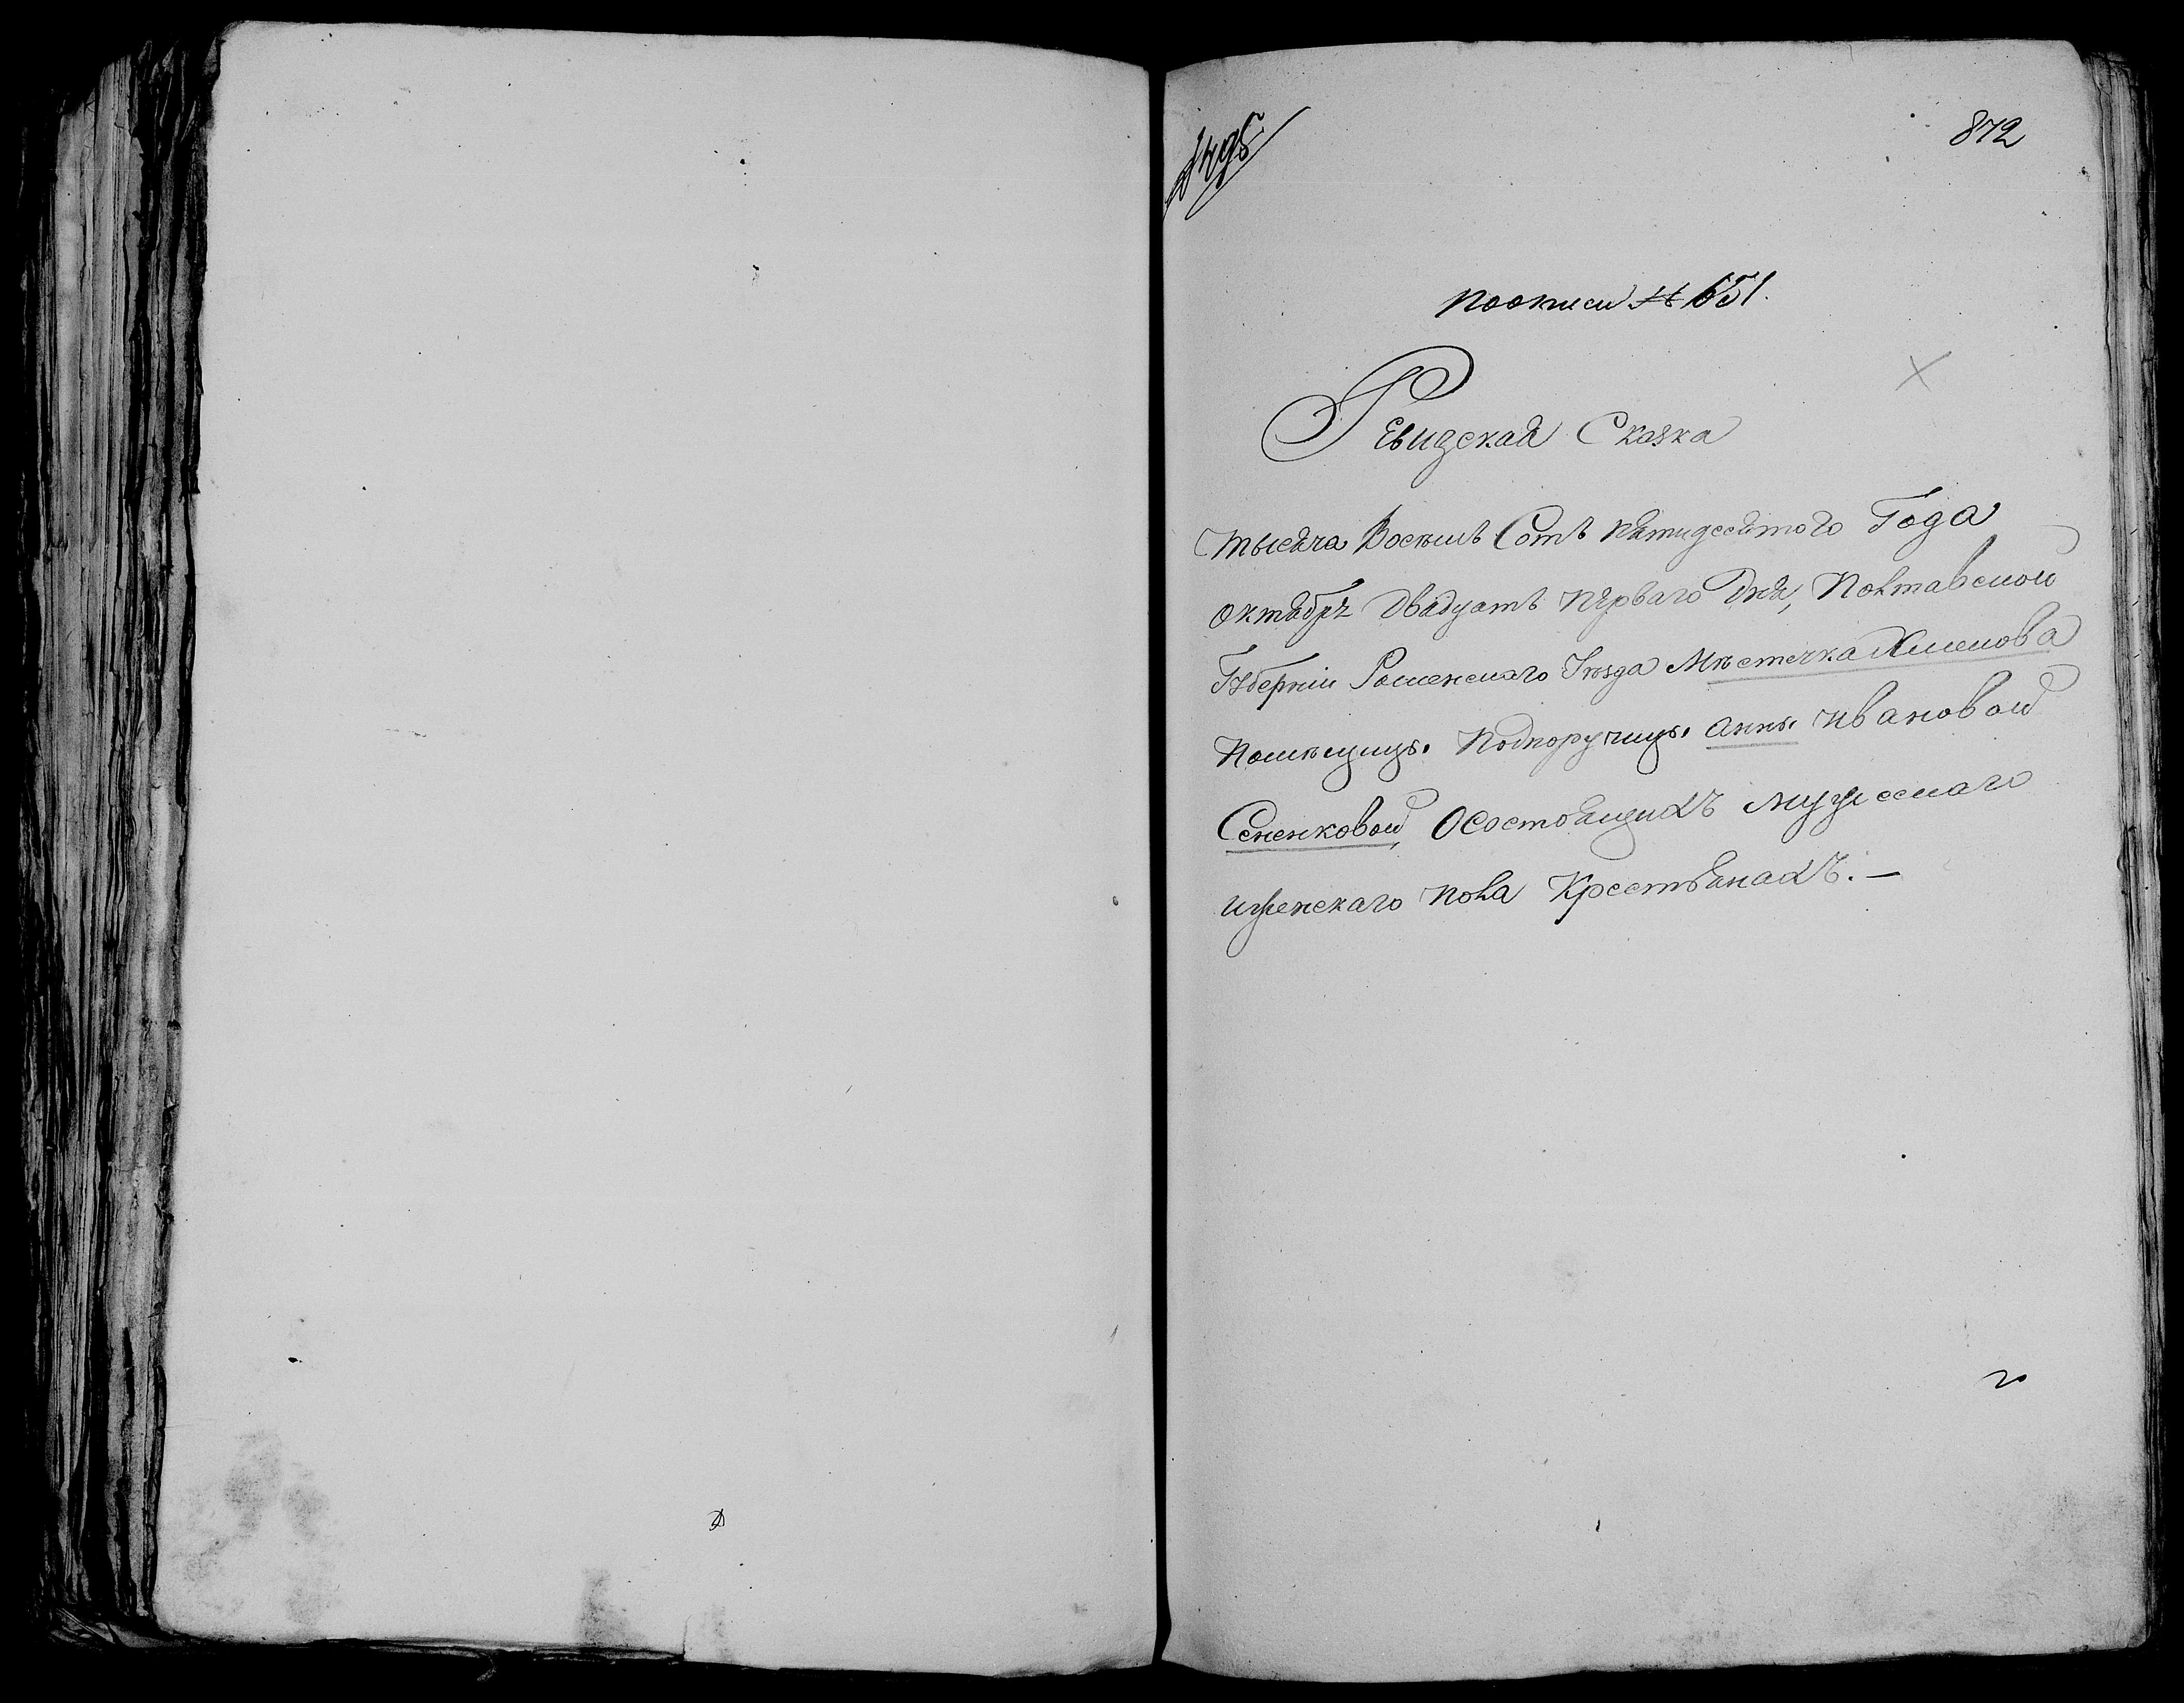 872
1495
поописи № 651.
Ревизская Сказка
Тысяча Восемь Сотъ Пятидесятого Года
Октября Двадцать Перваго Дня, Полтавской
Губерніи Роменскаго Уезда Местечка Хмелова
Помещицы Подпоручицы Анны Ивановой
Сененковой, Осостоящихъ мужескаго
иженскаго пола Крестьянахъ. —